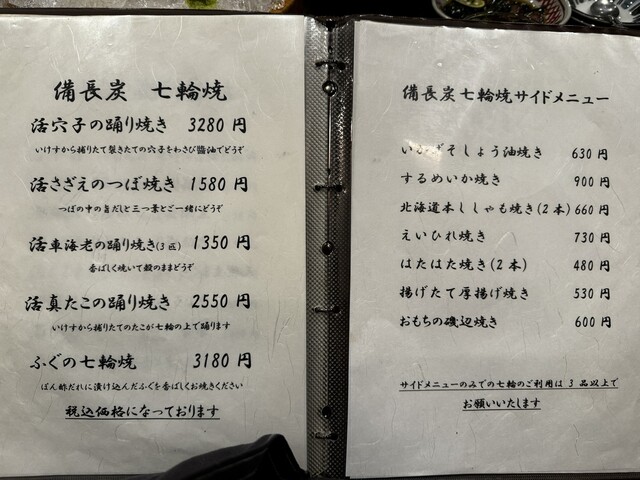 備長炭 七輪焼
活穴子の踊り焼き 3280 円
いけすから捕りたて裂きたての穴子をわさび醤油でどうぞ
活さざえのつぼ焼き 1580 円
つぼの中の旨だしと三つ葉とご一緒にどうぞ
活車海老の踊り焼き(3匹) 1350 円
香ばしく焼いて殻のままどうぞ
活真たこの踊り焼き 2550 円
いけすから捕りたてのたこが七輪の上で踊ります
ふぐの七輪焼 3180 円
ぽん酢だれに漬け込んだふぐを香ばしくお焼きください
税込価格になっております
備長炭七輪焼サイドメニュー
いかげそしょう油焼き 630 円
するめいか焼き 900 円
北海道本ししゃも焼き(2本) 660 円
えいひれ焼き 730 円
はたはた焼き(2本) 480 円
揚げたて厚揚げ焼き 530 円
おもちの磯辺焼き 600 円
サイドメニューのみでの七輪のご利用は 3 品以上で
お願いいたします